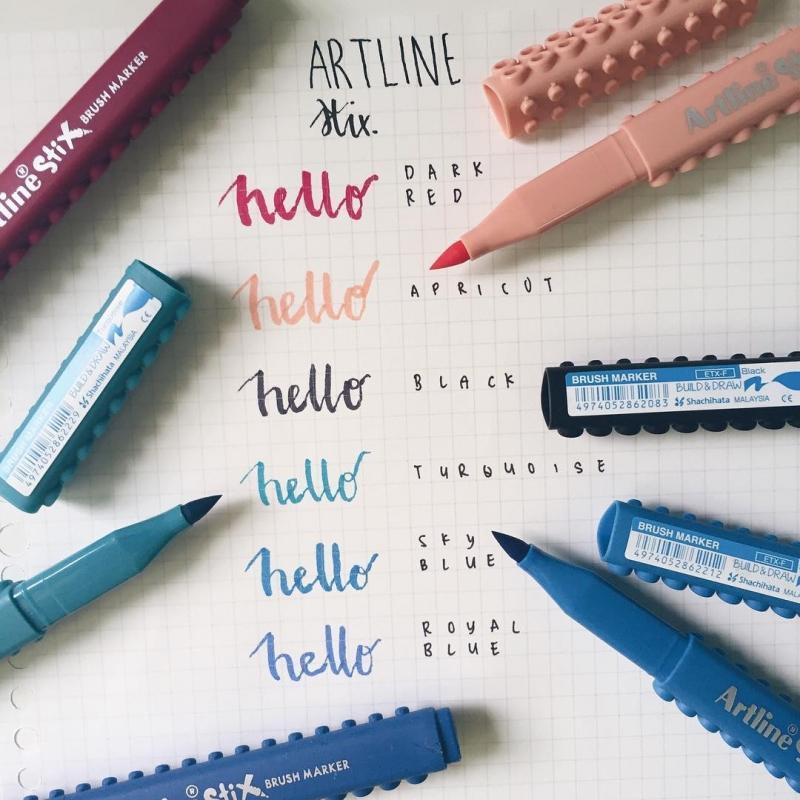 ARTLINE
Stix.
hello
DARK
RED
hello
APRICOT
hello
BLACK
hello
TURQUOISE
hello
SKY
BLUE
hello
ROYAL
BLUE
Stix BRUSH MARKER
Artline
Turquoise
BUILD & DRAW
Shachihata MALAYSIA CE
4974052862229
BRUSH MARKER ETX-F Black
BUILD & DRAW
4974052862083 Shachihata MALAYSIA CE
BRUSH MARKER ETX-F
BUILD & DRAW
4974052862212 Shachihata
Artline
Stix BRUSH MARKER